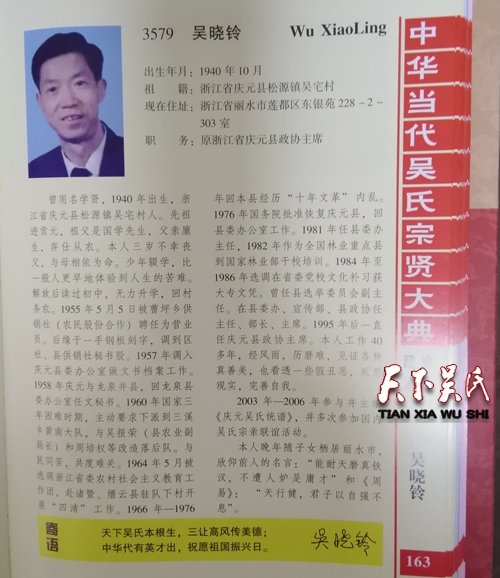 3579 吴晓铃 Wu XiaoLing
出生年月：1940 年 10 月
祖 籍：浙江省庆元县松源镇吴宅村
现在住址：浙江省丽水市莲都区东银苑 228－2－
303 室
职 务：原浙江省庆元县政协主席
曾用名学贤，1940 年出生，浙
江省庆元县松源镇吴宅村人。先祖
进贡元，祖父是国学先生，父亲廪
生，弃任从农。本人三岁不幸丧
父，与母相依为命。少年辍学，比
一般人更早地体验到人生的苦难。
解放后读过初中，无力升学，回村
务农。1955 年 5 月被曹坪乡供
销社（农民股份合作）聘任为营业
员。后缘于一手钢板刻字，调到区
社、县供销社秘书股。1957 年调入
庆元县委办公室做文书档案工作。
1958 年庆元与龙泉并县，回龙泉县
委办公室任文秘书。1960 年国家三
年困难时期，主动要求下派到三溪
乡黄南大队，与吴报荣（县农业副
局长）和周培权等改造落后队。与
民同苦，共度难关。1964 年 5 月被
选调浙江省委农村社会主义教育工
作团，赴诸暨、缙云县驻队下村开
展“四清”工作。1966 年—1976
年回本县经历“十年文革”内乱。
1976 年国务院批准恢复庆元县，回
县委办公室工作。1981 年任县委办
主任，1982 年作为全国林业重点县
到国家林业部干校培训。1984 年至
1986 年选调在省委党校文化补习获
大专文凭。曾任县选举委员会副主
任。在县委办、宣传部、县政协任
主任、部长、主席。1995 年后一直
任庆元县政协主席。本人工作 40
多年，经风雨，历磨难，见证各种
真善美，也看透一些假丑恶，反思
现实，完善自我。
2003 年—2006 年参与并主编
《庆元吴氏统谱》，并多次参加国内
吴氏宗亲联谊活动。
本人晚年随子女栖居丽水市，
欣仰前人的名言：“能耐天磨真铁
汉，不遭人妒是庸才”和《周
易》：“天行健，君子以自强不
息”。
寄语
天下吴氏本根生，三让高风传美德；
中华代有英才出，祝愿祖国振兴日。
吴晓铃
中华当代吴氏宗贤大典
天下吴氏
TIAN XIA WU SHI
吴晓铃
163